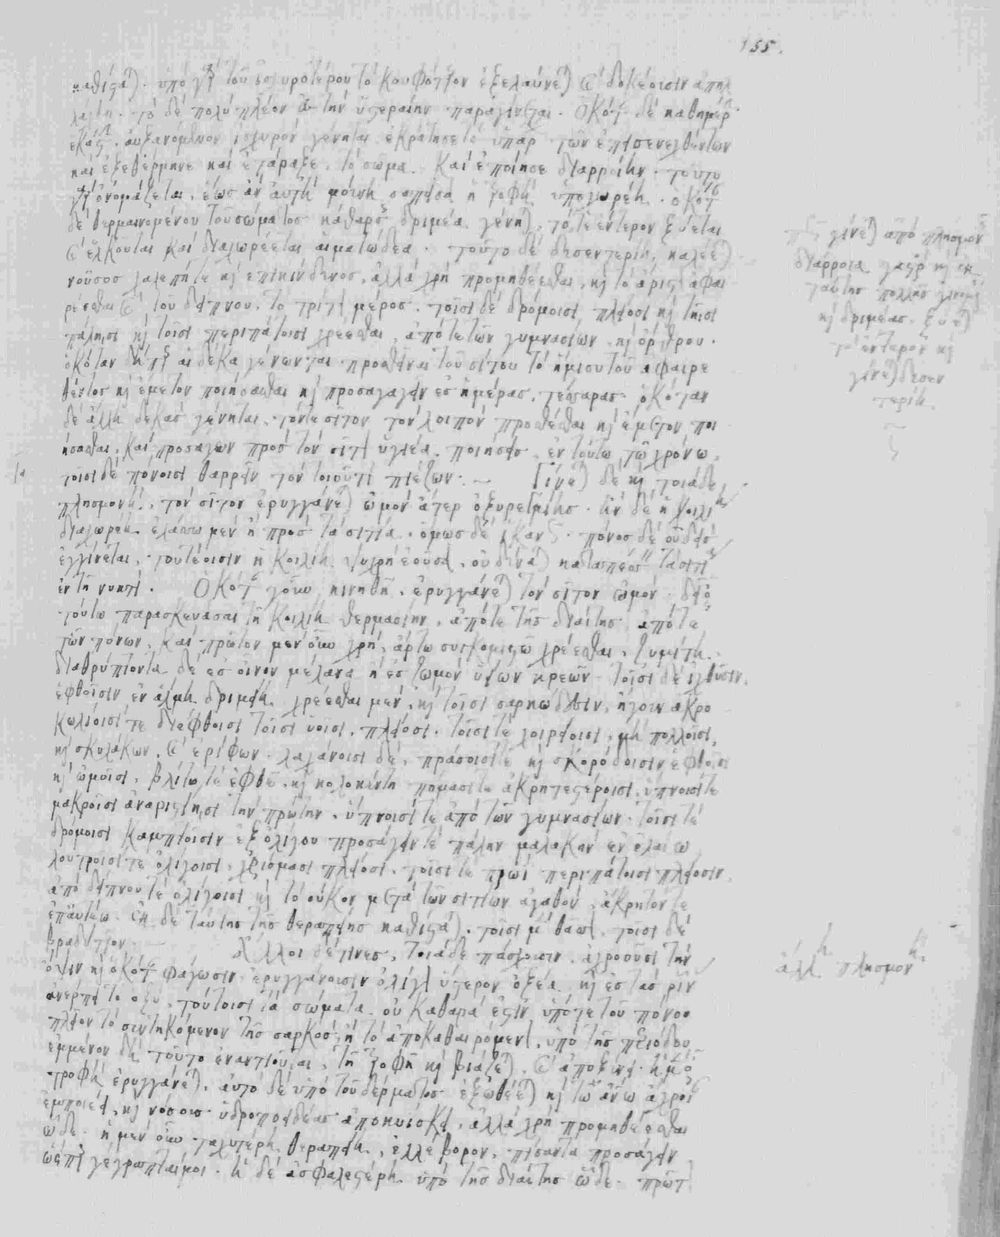 155.
καθίζει. ὑπὸ γὰρ τοῦ ἰσχυροτέρου τὸ κουφότερον ἐξελαύνεται δοκέοισιν ἀπηλ
λάχθαι. τὸ δὲ πολὺ πλέον ἐς τὴν ὑστεραίην παραγίνεται. ὁκόταν δὲ καθημέρ
ἑκάστην αὐξανόμενον ἰσχυρὸν γένηται ἐκράτησε τὸ ὑπάρχον τῶν ἐπεισενεχθέντων
καὶ ἐξεθέρμηνε καὶ ἐτάραξε τὸ σῶμα. καὶ ἐποίησε διαρροίην. τοῦτο
γὰρ ὀνομάζεται, ἕως ἂν αὐτὴ μούνη σαπεῖσα ἡ τροφὴ ὑποχωρέῃ. ὁκόταν
δὲ θερμαινομένου τοῦ σώματος κάθαρσις δριμέα γένηται, τό τε ἔντερον ξύεται
καὶ ἑλκοῦται καὶ διαχωρέεται αἱματώδεα. τοῦτο δὲ δυσεντερίη καλέεται
νοῦσος χαλεπή τε καὶ ἐπικίνδυνος, ἀλλὰ χρὴ προμηθέεσθαι, καὶ τὸ ἄριστον ἀφαι
ρέεσθαι καὶ τοῦ δείπνου, τὸ τρίτον μέρος. τοῖσι δὲ δρόμοισι πλείοσι καὶ τῇσι
πάλῃσι καὶ τοῖσι περιπάτοισι χρέεσθαι, ἀπό τε τῶν γυμνασίων, καὶ ὄρθρου.
ὁκόταν δὲ ἡμέραι δέκα γένωνται προσθέναι τοῦ σίτου τὸ ἥμισυ τοῦ ἀφαιρε
θέντος καὶ ἔμετον ποιήσασθαι καὶ προσαγαγεῖν ἐς ἡμέρας τέσσαρας. ὁκόταν
δὲ ἄλλη δεκὰς γένηται, τόν τε σῖτον τὸν λοιπὸν προσθέσθαι καὶ ἔμετον ποι
ήσασθαι, καὶ προσάγων πρὸς τὸν σῖτον ὑγιέα ποιήσεις ἐν τούτῳ τῷ χρόνῳ.
τοῖσι δὲ πόνοισι θαρρεῖν τὸν τοιοῦτον πιέζων. Γίνεται δὲ καὶ τοιάδε
πλησμονή. τὸν σῖτον ἐρυγγάνεται ὠμὸν ἄτερ ὀξυρεγμίης. ἡ δὲ κοιλίη
διαχωρέει ἐλάσσω μὲν ἢ πρὸς τὰ σιτία. ὅμως δὲ ἱκανῶς. πόνος δὲ οὐδεὶς
ἐγγίνεται. τουτέοισιν ἡ κοιλίη ψυχρὴ ἐοῦσα, οὐ δύναται κατασπέσσειν τὰ σιτία
ἐν τῇ νυκτί. Ὁκόταν οὖν κινηθῇ, ἐρυγγάνεται τὸν σῖτον ὠμόν. δεῖ
τούτῳ παρασκευάσαι τῇ κοιλίῃ θερμασίην, ἀπό τε τῆς διαίτης ἀπό τε
τῶν πόνων. καὶ πρῶτον μὲν οὖν χρὴ ἄρτῳ συγκομιστῷ χρέεσθαι, ζυμίτῃ
διαθρύπτοντα δὲ ἐς οἶνον μέλανα ἢ ἐς ζωμὸν ὑείων κρεῶν. τοῖσι δὲ ἰχθύσιν
ἑφθοῖσιν ἐν ἅλμῃ δριμείῃ χρέεσθαι μὲν, καὶ τοῖσι σαρκώδεσιν, ἤγουν ἀκρο
κωλίοισί τε διέφθοισι τοῖσι ὑείοισι, πλείοσι. τοῖσί τε χοιρείοισι, μὴ πολλοῖσι,
καὶ σκυλάκων καὶ ἐρίφων. λαχάνοισι δὲ, πράσοισί τε καὶ σκορόδοισιν ἑφθοῖσι
καὶ ὠμοῖσι, βλίτῳ τε ἑφθῷ, καὶ κολοκύντῃ πόμασί τε ἀκρητεστέροισι, ὕπνοισί τε
μακροῖσι ἀναριστίῃσι τὴν πρώτην, ὕπνοισί τε ἀπὸ τῶν γυμνασίων. τοῖσί τε
δρόμοισι καμπτοῖσιν ἐξ ὀλίγου προσάγειν τε πάλην μαλακὴν ἐν ἐλαίῳ
λουτροῖσί τε ὀλίγοισι, χρίσμασι πλείοσι, τοῖσί τε πρωῒ περιπάτοισι πλείοσιν,
ἀπὸ δείπνου τε ὀλίγοισι καὶ τὸ σῦκον μετὰ τῶν σιτίων ἀγαθόν, ἄκρητόν τε
ἐπ' αὐτέῳ. ἐκ δὲ ταύτης τῆς θεραπείης καθίσταται τοῖσι μὲν θᾶσσον, τοῖσι δὲ
βραδύτερον. Ἄλλοι δέ τινες, τοιάδε πάσχουσιν. ἀχροοῦσι τὴν
ὄψιν καὶ ὁκόταν φάγωσιν, ἐρυγγάνουσιν ὀλίγον ὕστερον ὀξέα καὶ ἐς τὰς ῥῖν
ἀνέρπει τὸ ὀξύ. τούτοισι τὰ σώματα οὐ καθαρά ἐστιν. ὑπό τε τοῦ πόνου
πλεῖον τὸ συντηκόμενον τῆς σαρκὸς ἢ τὸ ἀποκαθαιρόμενον, ὑπὸ τῆς περιόδου
ἐμμένον δὲ τοῦτο ἐναντιοῦται τῇ τροφῇ καὶ βιάζεται καὶ ἀποξύνει. ἡ μὲν οὖν
τροφὴ ἐρυγγάνεται, αὐτὸ δὲ ὑπὸ τοῦ δέρματος ἐξωθέεται καὶ τῷ ἀνθρώπῳ ἀχροί
ἐμποιέει, καὶ νόσους ὑδροποειδέας ἀποκυΐσκει, ἀλλὰ χρὴ προμηθέεσθαι
ὧδε. ἡ μὲν οὖν ταχυτέρη θεραπείη, ἑλλέβορον πίσαντα προσάγειν
ὥσπερ γέγραπταί μοι. ἡ δὲ ἀσφαλεστέρη ὑπὸ τῆς διαίτης ὧδε. πρῶτον
γίνεται ἀπὸ πλησμονῆς
διάρροια καὶ ἐκ
ταύτης πολλῆς
καὶ δριμείας ξύεται
τὸ ἔντερον καὶ
γίνεται δυσεν
τερίη.
ἄλλη πλησμονή.